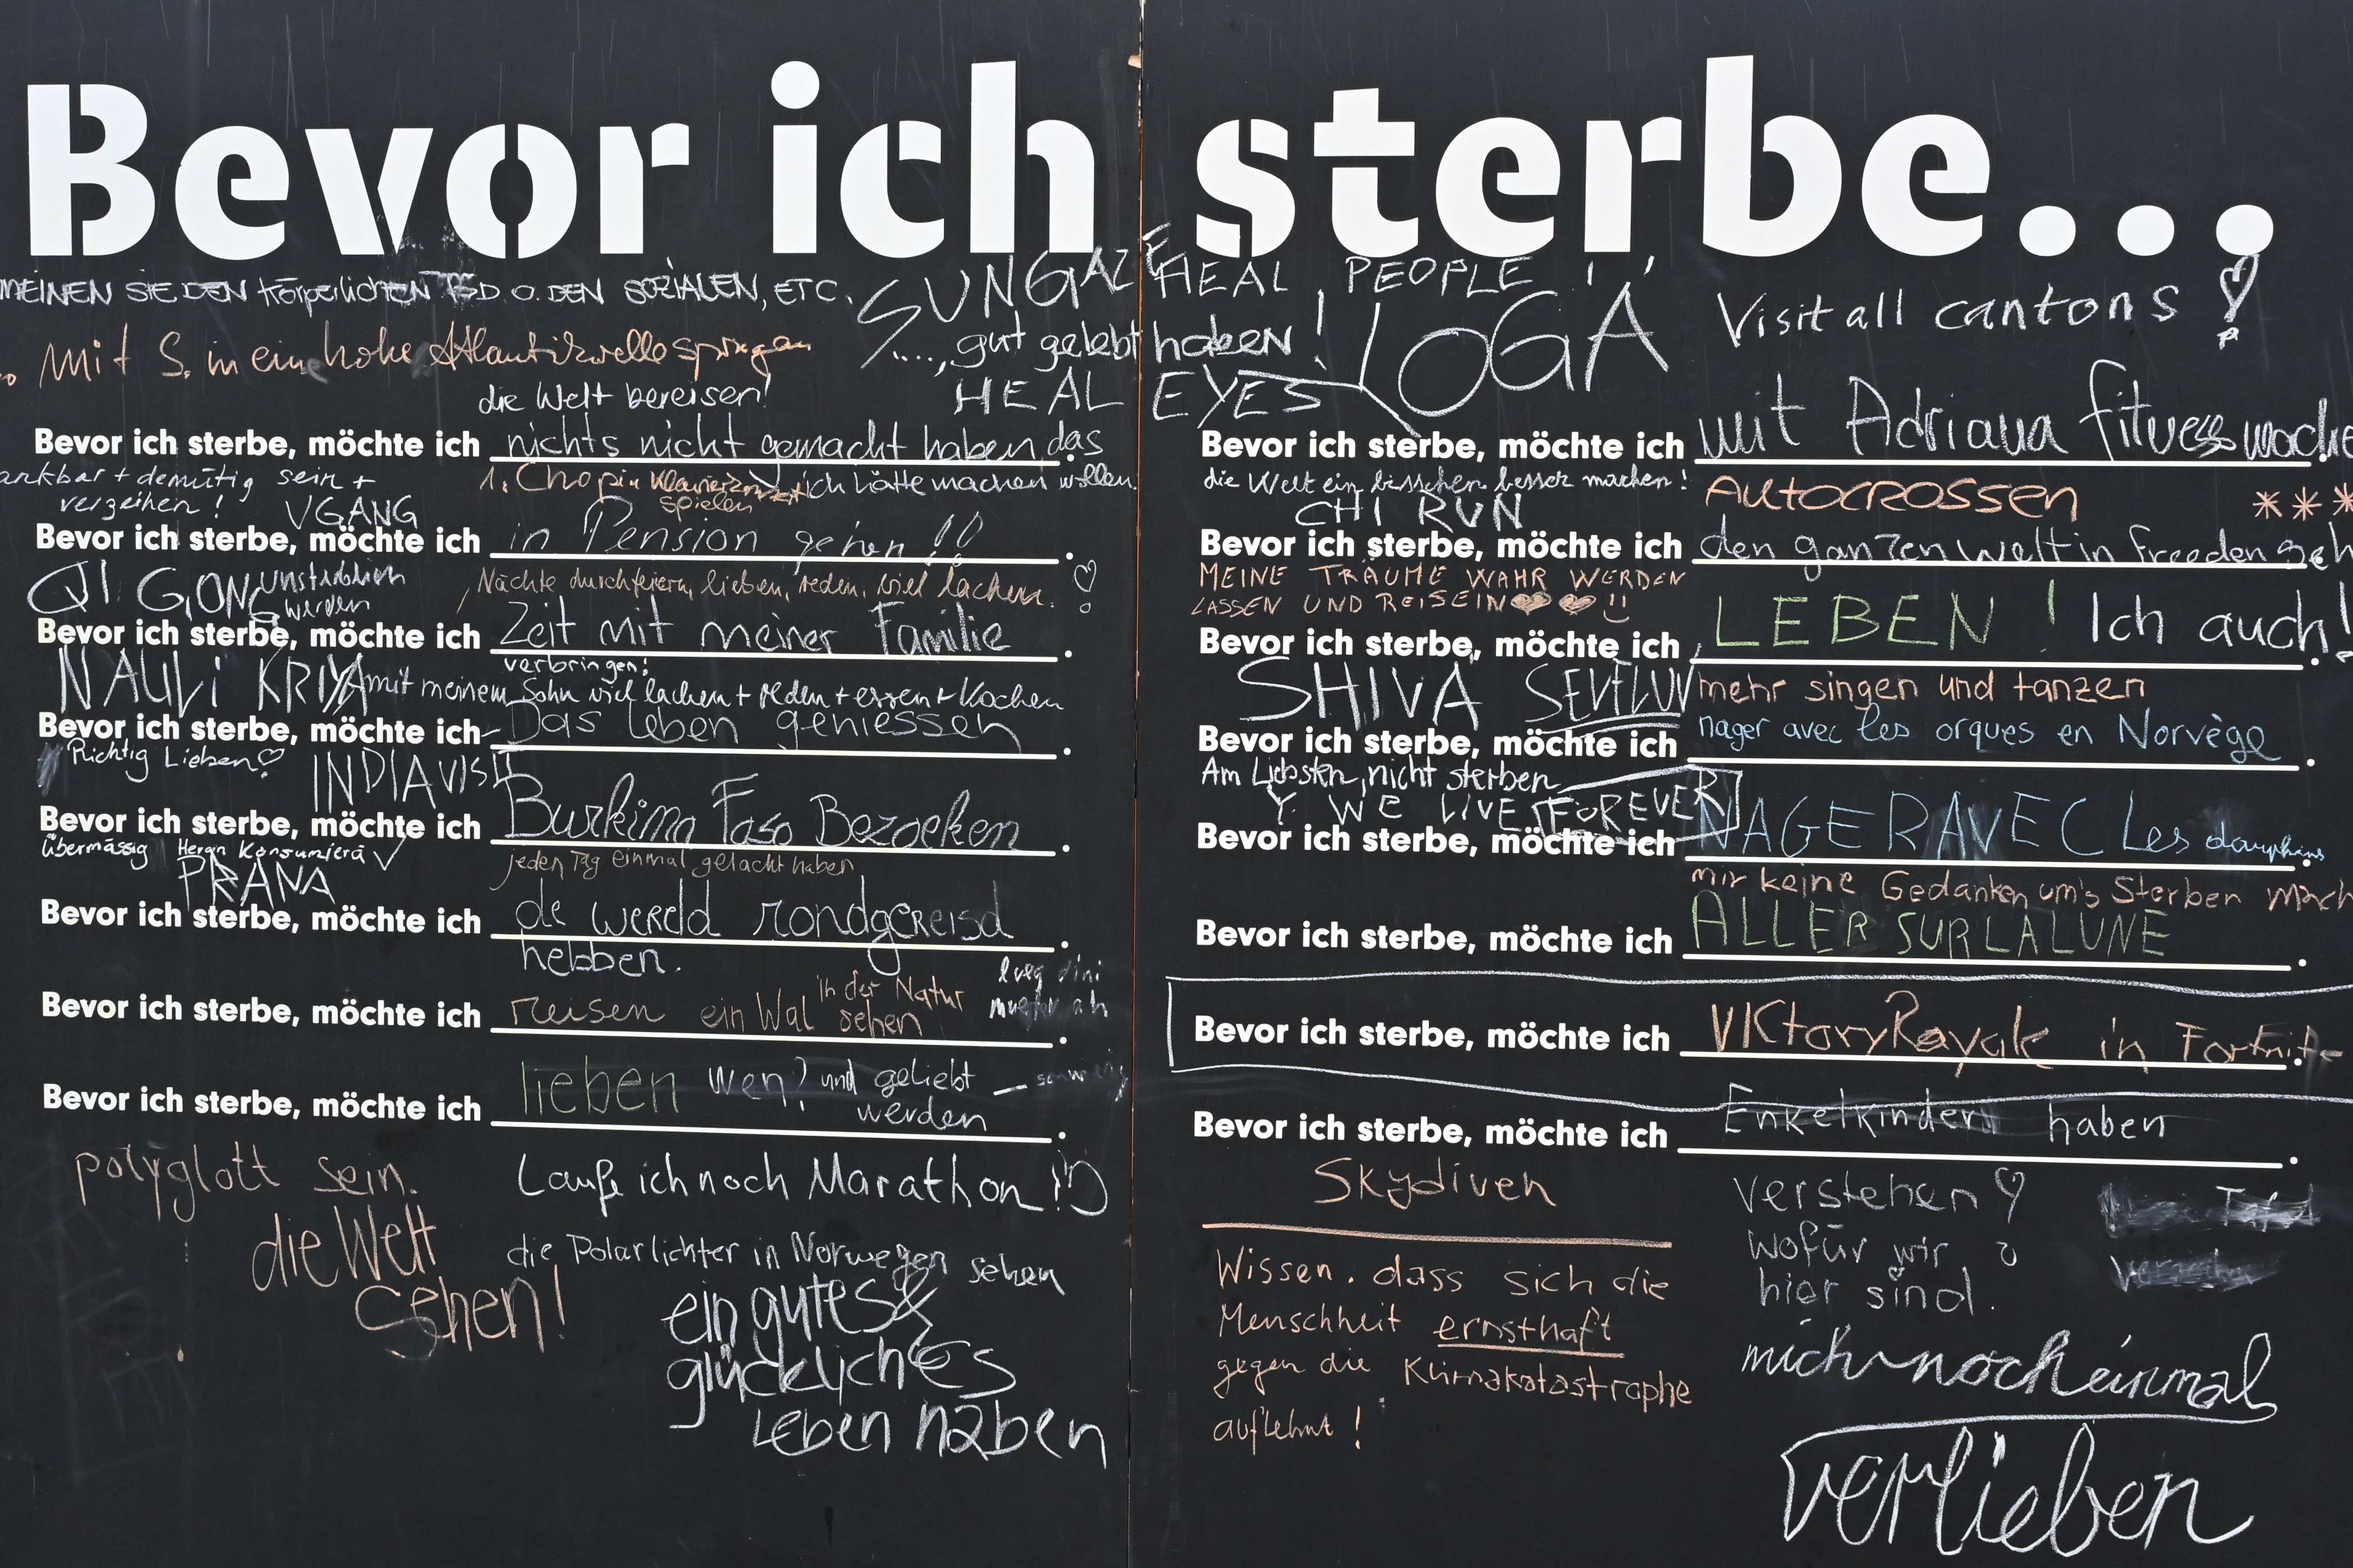 Bevor ich sterbe...
MEINEN SIE DEN körperlichen TOD O. DEN SOZIALEN, ETC.
... mit S. in eine hohe Atlantikwelle springen
die Welt bereisen!
SUNGAZE HEAL PEOPLE !
...., gut gelebt haben!
HEAL EYES
Bevor ich sterbe, möchte ich nichts nicht gemacht haben, das
ich hätte machen wollen.
ankbar + demütig sein +
verzeihen !
1. Chopin
spielen
Bevor ich sterbe, möchte ich in Pension gehen !!
QI GONG unsterblich
werden
Nächte durchfeiern, lieben, reden, viel lachen.
Bevor ich sterbe, möchte ich Zeit mit meiner Familie
verbringen!
NAULI KRIYA mit meinem Sohn viel lachen + reden + essen + kochen
Bevor ich sterbe, möchte ich Das leben geniessen
Richtig Lieben
INDIA VISIT
Bevor ich sterbe, möchte ich Burkima Faso Bezoeken
übermässig
PRANA
jeden Tag einmal gelacht haben
Bevor ich sterbe, möchte ich de wereld rondgereisd
hebben.
Bevor ich sterbe, möchte ich reisen ein Wal in der Natur
sehen
Bevor ich sterbe, möchte ich lieben wen? und geliebt
werden
polyglott sein.
die Welt
sehen!
ich noch Marathon
die Polarlichter in Norwegen sehen
ein gutes &
glückliches
Leben haben
LOGA
Visit all cantons
Bevor ich sterbe, möchte ich mit Adriana fitness mache
die Welt ein bisschen besser machen!
CHI RUN
AUTOCROSSEN ***
Bevor ich sterbe, möchte ich den ganzen welt in freeden seh
MEINE TRÄUME WAHR WERDEN
LASSEN UND REISEIN
Bevor ich sterbe, möchte ich LEBEN ! Ich auch!
SHIVA
mehr singen und tanzen
Bevor ich sterbe, möchte ich nager avec les orques en Norvège
Am Liebsten, nicht sterben
Y WE LIVE FOREVER
Bevor ich sterbe, möchte ich NAGER AVEC Les dauphins
mir keine Gedanken um's Sterben mach
Bevor ich sterbe, möchte ich ALLER SUR LA LUNE
Bevor ich sterbe, möchte ich VICtory Royale in Fortnite
Bevor ich sterbe, möchte ich Enkelkinder haben
Skydiven
Wissen, dass sich die
Menschheit ernsthaft
gegen die Klimakatastrophe
auflehnt !
verstehen
wofür wir
hier sind.
mich noch einmal
verlieben